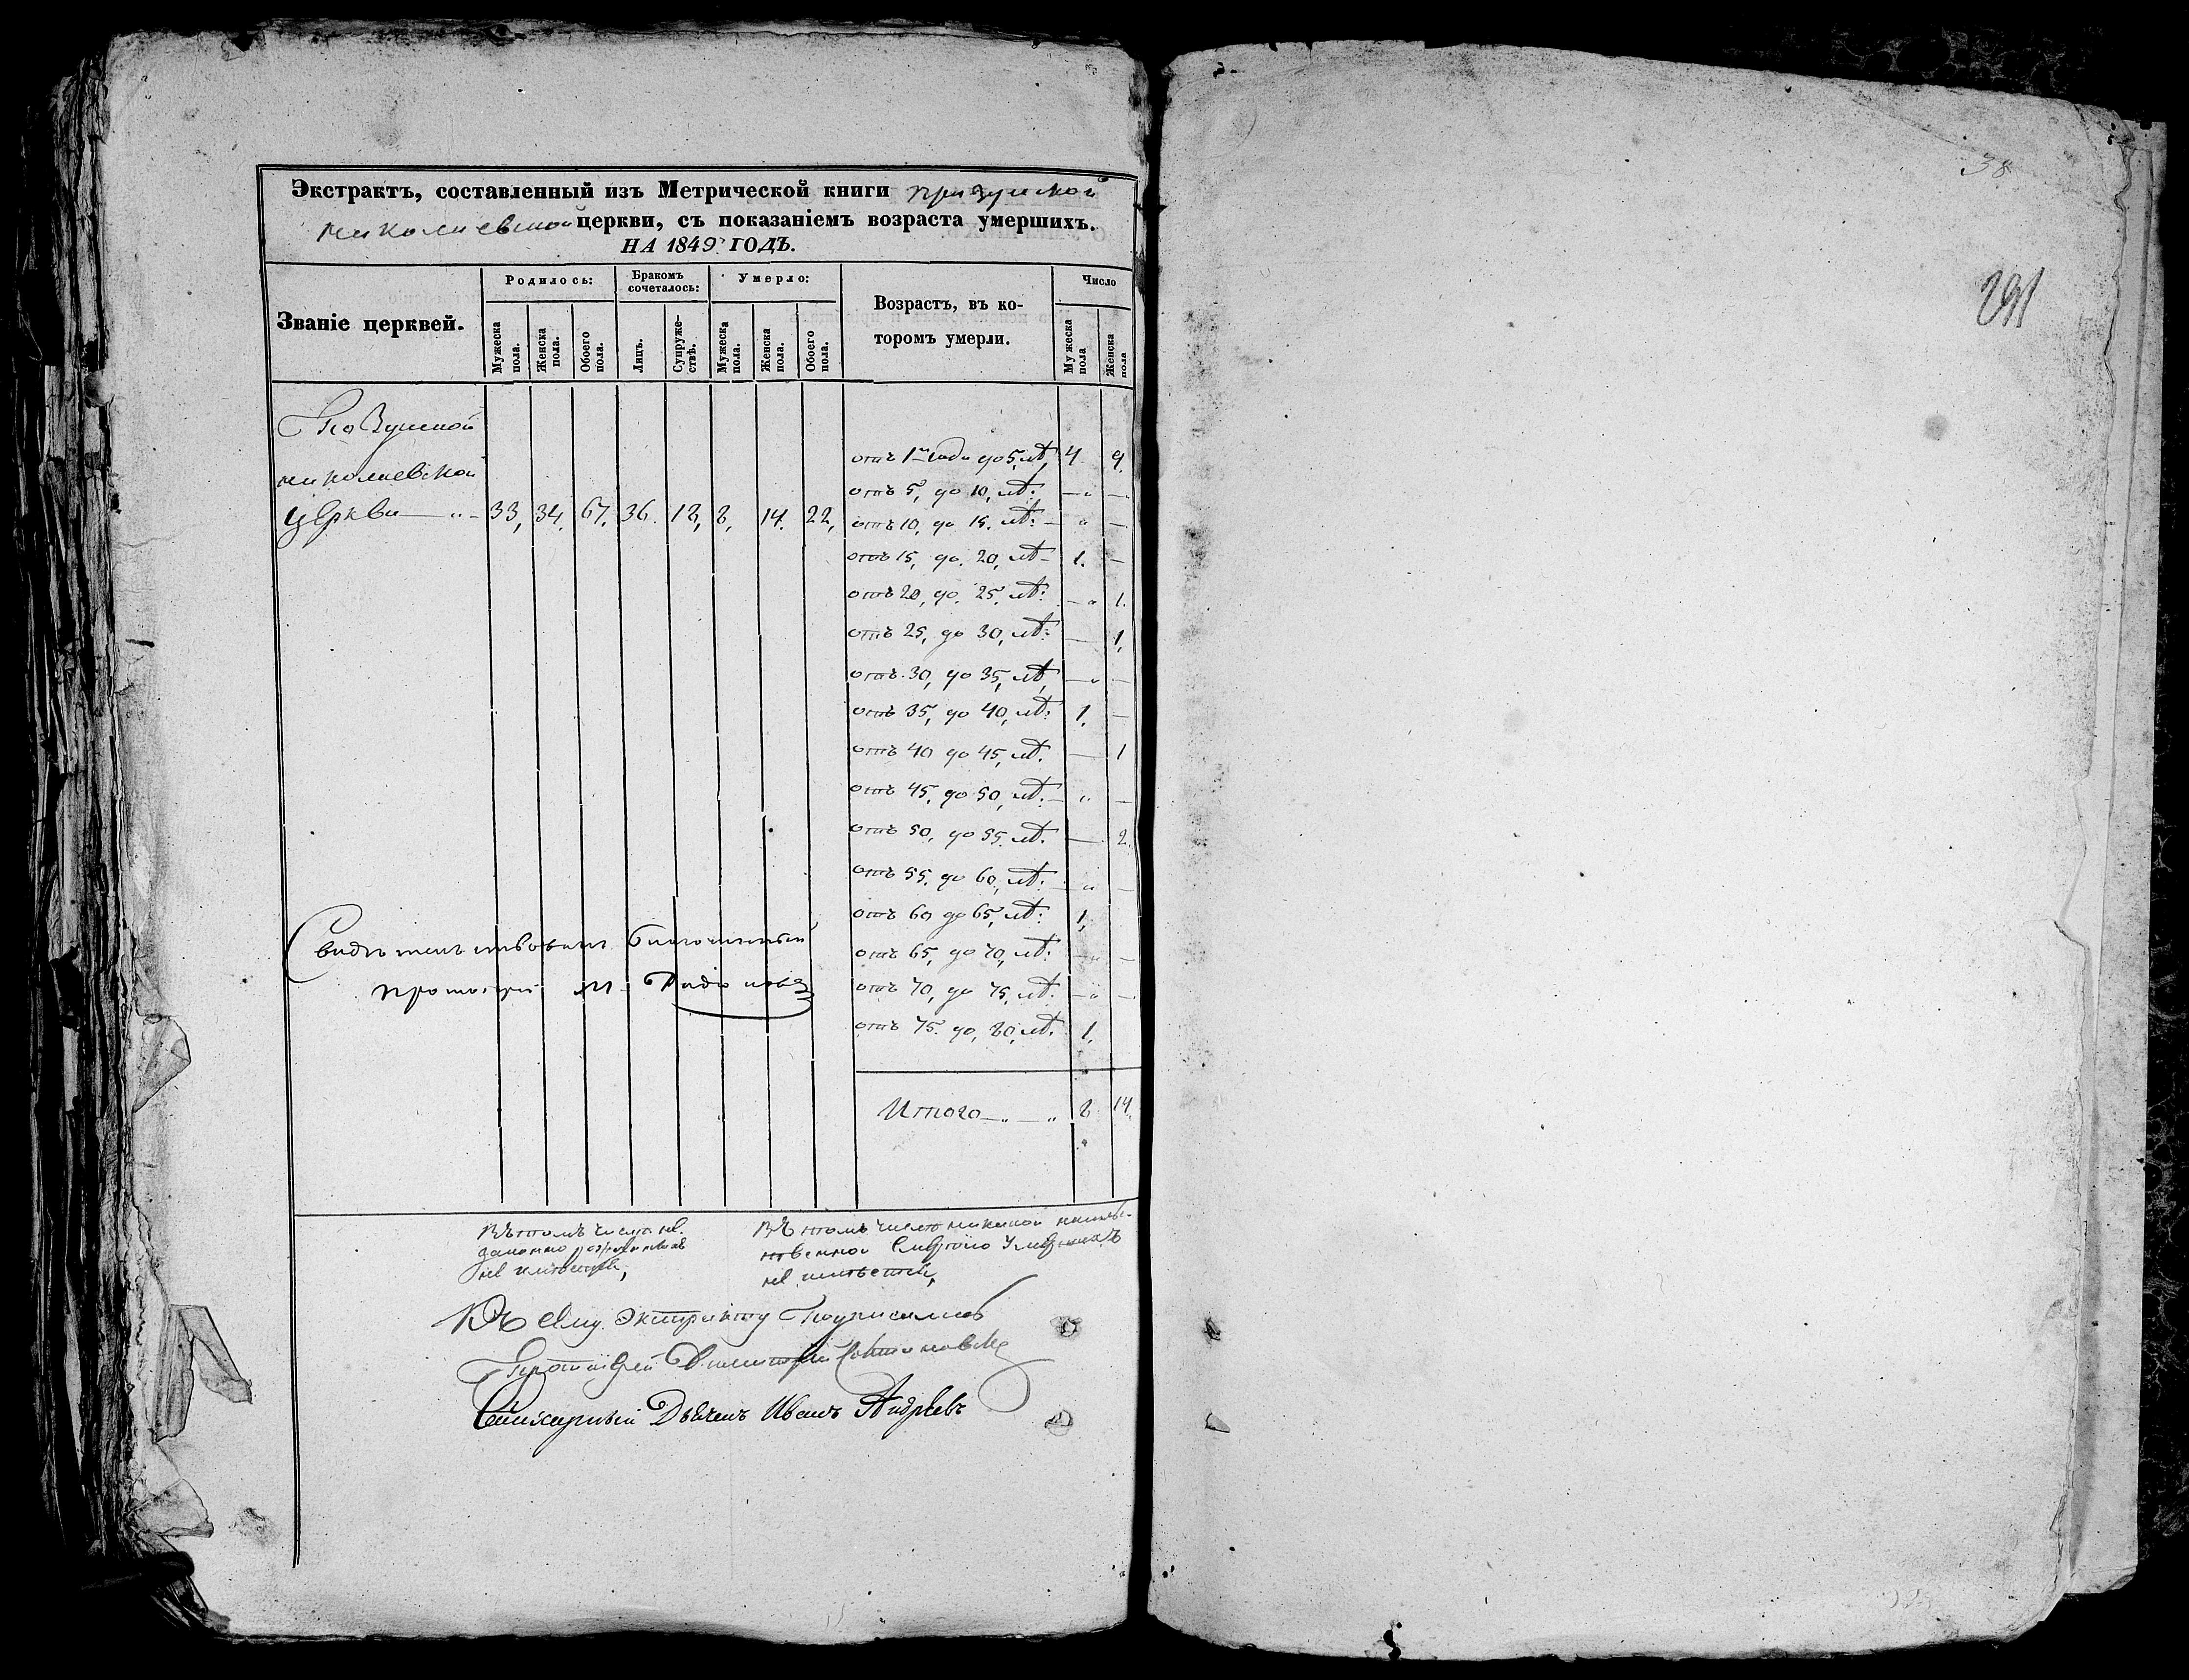 Экстрактъ, составленный изъ Метрической книги
николаевской церкви, съ показаніемъ возраста умершихъ.
НА 1849 ГОДЪ.
Званіе церквей.
Родилось:
Мужеска пола.
Женска пола.
Обоего пола.
Бракомъ сочеталось:
Лицъ.
Супружествъ.
Умерло:
Мужеска пола.
Женска пола.
Обоего пола.
Возрастъ, въ ко-
торомъ умерли.
Число
Мужеска пола
Женска пола
николаевской
церкви — „ — 33, 34. 67. 36. 18, 8, 14. 22,
отъ 1го года до 5, лѣт, 4. 9.
отъ 5, до 10, лѣт: — „ —
отъ 10, до 15. лѣт: — „ —
отъ 15, до, 20, лѣт — 1. —
отъ 20, до, 25, лѣт: — „ 1.
отъ 25, до 30, лѣт: — 1,
отъ 30, до 35, лѣт, — „ —
отъ 35, до 40, лѣт: 1. —
отъ 40 до 45, лѣт. — 1
отъ 45, до 50, лѣт. — „ —
отъ 50, до 55. лѣт. — 2.
отъ 55. до 60, лѣт: — „ —
отъ 60 до 65, лѣт: 1,
отъ 65, до 70, лѣт: — „ —
отъ 70, до 75, лѣт. — „ —
отъ 75. до, 80, лѣт. 1,
Итого — „ — „ 8. 14.
Свидѣтельствовалъ благочинный
протоіерей М.
Въ томъ числѣ не
законно рожденныхъ
не имѣется,
Въ томъ числѣ никакой насильственной смертію умершихъ
не имѣется,
Къ сему Экстракту Подписались
Протоіерей Димитрій
Дьячекъ Иванъ Андреевъ
38
291